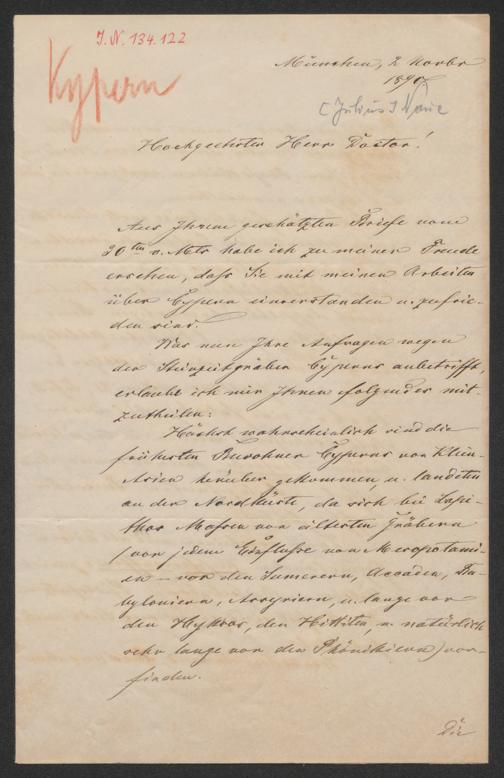 J. N. 134.122
Kypern
München, 2 Novbr
1890
[Julius] Naue
Hochgeehrter Herr Doctor!
Aus Ihrem geschätzten Briefe vom
30ten v. Mts habe ich zu meiner Freude
ersehen, daß Sie mit meinen Arbeiten
über Cypern einverstanden u. zufrie-
den sind.
Was nun Ihre Anfragen wegen
der Steinzeitgräber Cyperns anbetrifft,
erlaube ich mir Ihnen folgendes mit-
zutheilen:
Höchst wahrscheinlich sind die
frühesten Bewohner Cyperns von Klein-
Asien herüber gekommen, u. landeten
an der Nordküste, da sich bei Lapi-
thos Massen von ältesten Gräbern
(vor jedem Einflusse von Mesopotami-
en – vor den Sumerern, Accaden, Ba-
byloniern, Assyriern, u. lange vor
den Hyksos, den Hittiten, u. natürlich
sehr lange vor den Phönikiern) vor-
finden.
Die